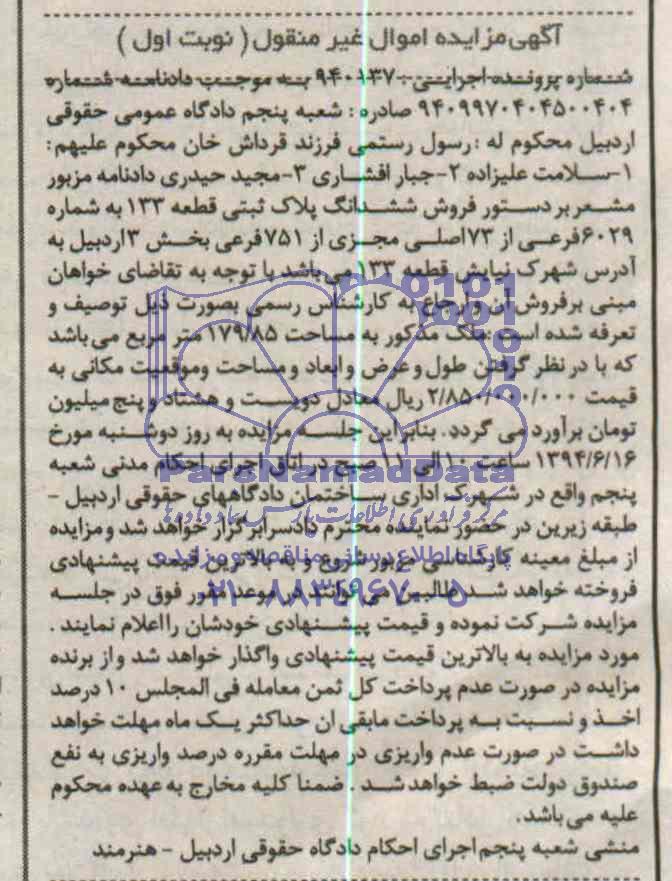 آگهی مزایده اموال غیر منقول ( نوبت اول )
شماره پرونده اجرایی : ۹۴۰۱۳۷ به موجب دادنامه شماره
۹۴۰۹۹۷۰۴۰۴۵۰۰۴۰۴ صادره : شعبه پنجم دادگاه عمومی حقوقی
اردبیل محکوم له : رسول رستمی فرزند قرداش خان محکوم علیهم :
۱-سلامت علیزاده ۲-جبار افشاری ۳-مجید حیدری دادنامه مزبور
مشعر بر دستور فروش ششدانگ پلاک ثبتی قطعه ۱۳۳ به شماره
۶۰۲۹فرعی از ۷۳اصلی مجزی از ۷۵۱فرعی بخش ۳اردبیل به
آدرس شهرک نیایش قطعه ۱۳۳ می باشد با توجه به تقاضای خواهان
مبنی برفروش آن وارجاع به کارشناس رسمی بصورت ذیل توصیف و
تعرفه شده است :ملک مذکور به مساحت ۱۷۹/۸۵ متر مربع می باشد
که با در نظر گرفتن طول و عرض و ابعاد و مساحت وموقعیت مکانی به
قیمت ۲/۸۵۰/۰۰۰/۰۰۰ ریال معادل دویست و هشتاد و پنج میلیون
تومان برآورد می گردد. بنابراین جلسه مزایده به روز دوشنبه مورخ
۱۳۹۴/۶/۱۶ ساعت ۱۰ الی ۱۱ صبح در اتاق اجرای احکام مدنی شعبه
پنجم واقع در شهرک اداری ساختمان دادگاههای حقوقی اردبیل -
طبقه زیرین در حضور نماینده محترم دادسرا برگزار خواهد شد و مزایده
از مبلغ معینه کارشناسی مزبور شروع و به بالاترین قیمت پیشنهادی
فروخته خواهد شد طالبین می توانند در موعد مقرر فوق در جلسه
مزایده شرکت نموده و قیمت پیشنهادی خودشان را اعلام نمایند .
مورد مزایده به بالاترین قیمت پیشنهادی واگذار خواهد شد و از برنده
مزایده در صورت عدم پرداخت کل ثمن معامله فی المجلس ۱۰ درصد
اخذ و نسبت به پرداخت مابقی ان حداکثر یک ماه مهلت خواهد
داشت در صورت عدم واریزی در مهلت مقرره درصد واریزی به نفع
صندوق دولت ضبط خواهد شد . ضمنا کلیه مخارج به عهده محکوم
علیه می باشد.
منشی شعبه پنجم اجرای احکام دادگاه حقوقی اردبیل - هنرمند
ParsNamadData
پایگاه اطلاع رسانی مناقصه و مزایده
۰۲۱-۸۸۳۴۹۶۷۰-۵